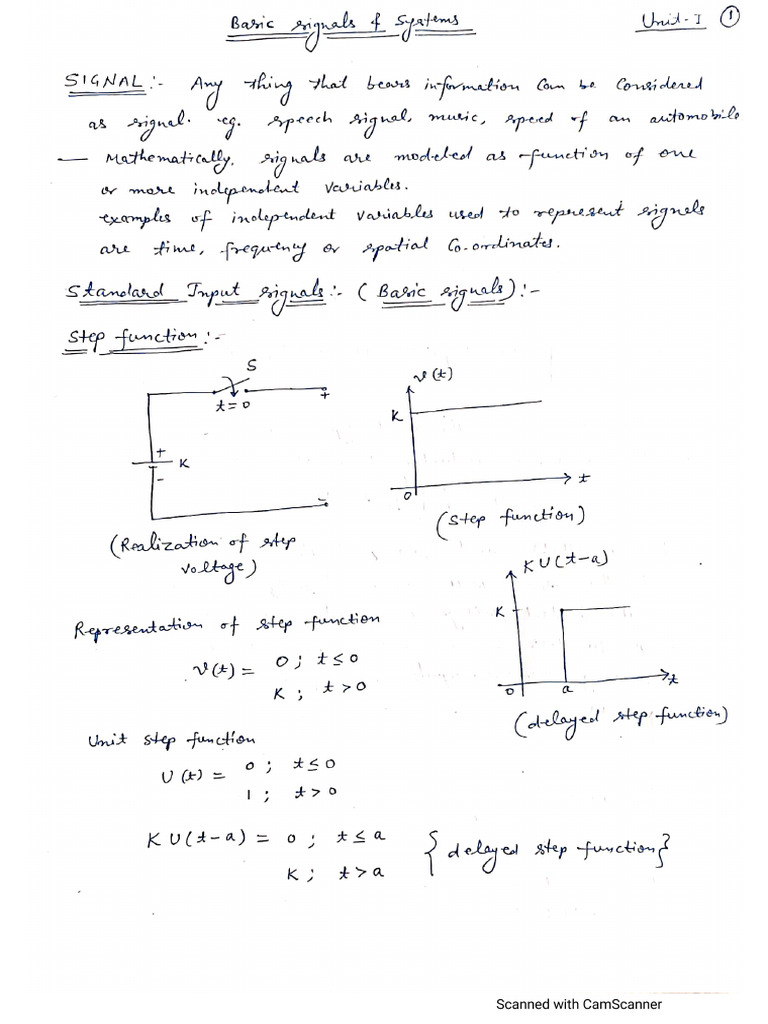 Basic signals & Systems
Unit-I ①
SIGNAL :- Any thing that bears information can be considered
as signal. eg. speech signal, music, speed of an automobile
— Mathematically, signals are modeled as function of one
or more independent variables.
examples of independent variables used to represent signals
are time, frequency or spatial Co-ordinates.
Standard Input signals :- (Basic signals) :-
Step function :-
S
t=0
+
+
K
-
-
(Realization of step
voltage)
v(t)
K
0
t
(step function)
KU(t-a)
K
0
a
t
(delayed step function)
Representation of step function
v(t) = 0 ; t ≤ 0
K ; t > 0
Unit step function
U(t) = 0 ; t ≤ 0
1 ; t > 0
KU(t-a) = 0 ; t ≤ a
K ; t > a
{delayed step function}
Scanned with CamScanner